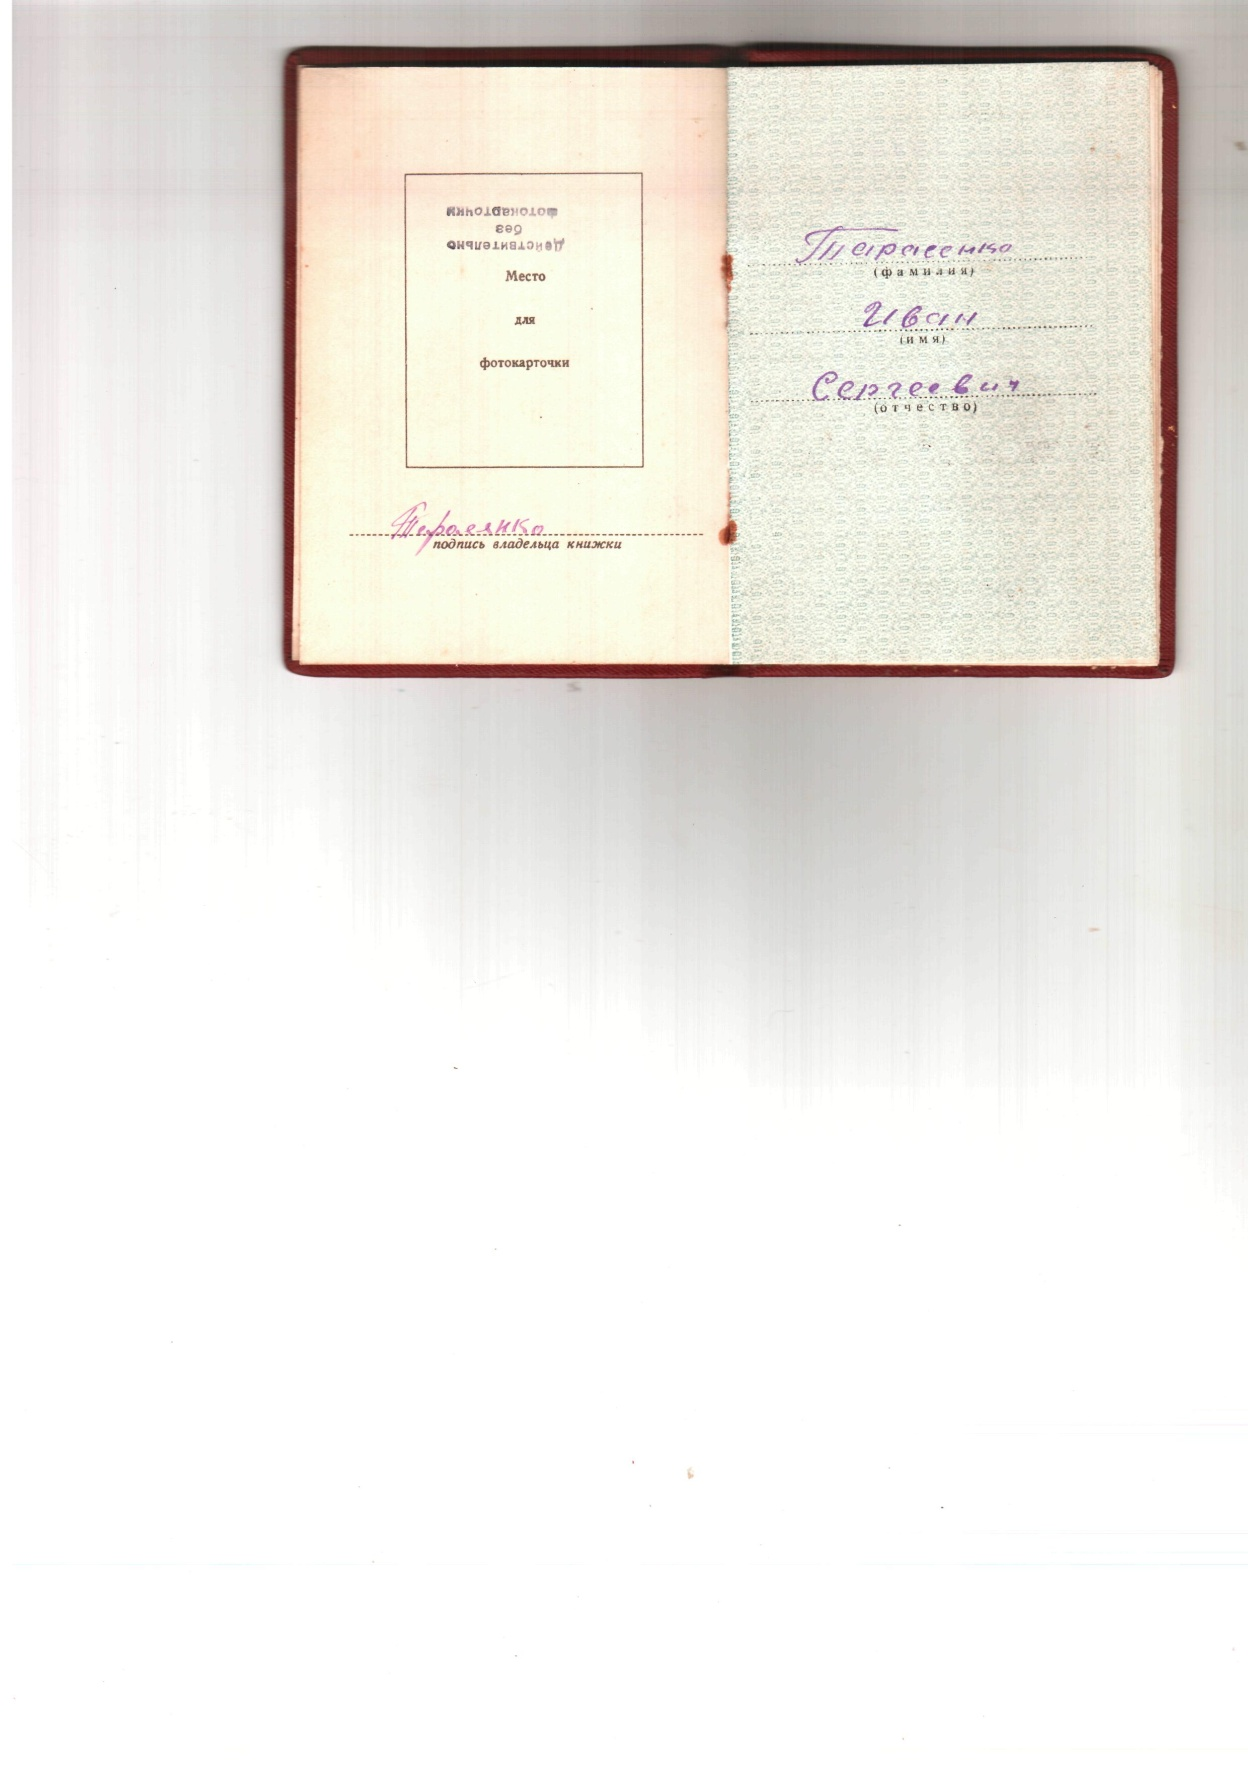 Действительно
без
фотокарточки
Место
для
фотокарточки
Тарасенко
подпись владельца книжки
Тарасенко
(фамилия)
Иван
(имя)
Сергеевич
(отчество)